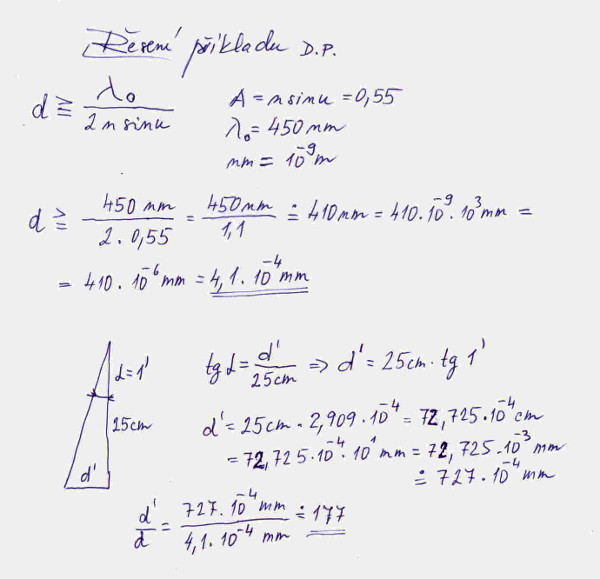 Řešení příkladu D.P.
d ≧ λ₀ / 2 n sin u
A = n sin u = 0,55
λ₀ = 450 nm
nm = 10⁻⁹ m
d ≧ 450 nm / 2 · 0,55 = 450 nm / 1,1 ≐ 410 nm = 410 · 10⁻⁹ · 10³ mm =
= 410 · 10⁻⁶ mm = 4,1 · 10⁻⁴ mm
α = 1'
25cm
d'
tg α = d' / 25cm ⇒ d' = 25cm · tg 1'
d' = 25cm · 2,909 · 10⁻⁴ = 72,725 · 10⁻⁴ cm
= 72,725 · 10⁻⁴ · 10¹ mm = 72,725 · 10⁻³ mm
≐ 727 · 10⁻⁴ mm
d' / d = 727 · 10⁻⁴ mm / 4,1 · 10⁻⁴ mm ≐ 177